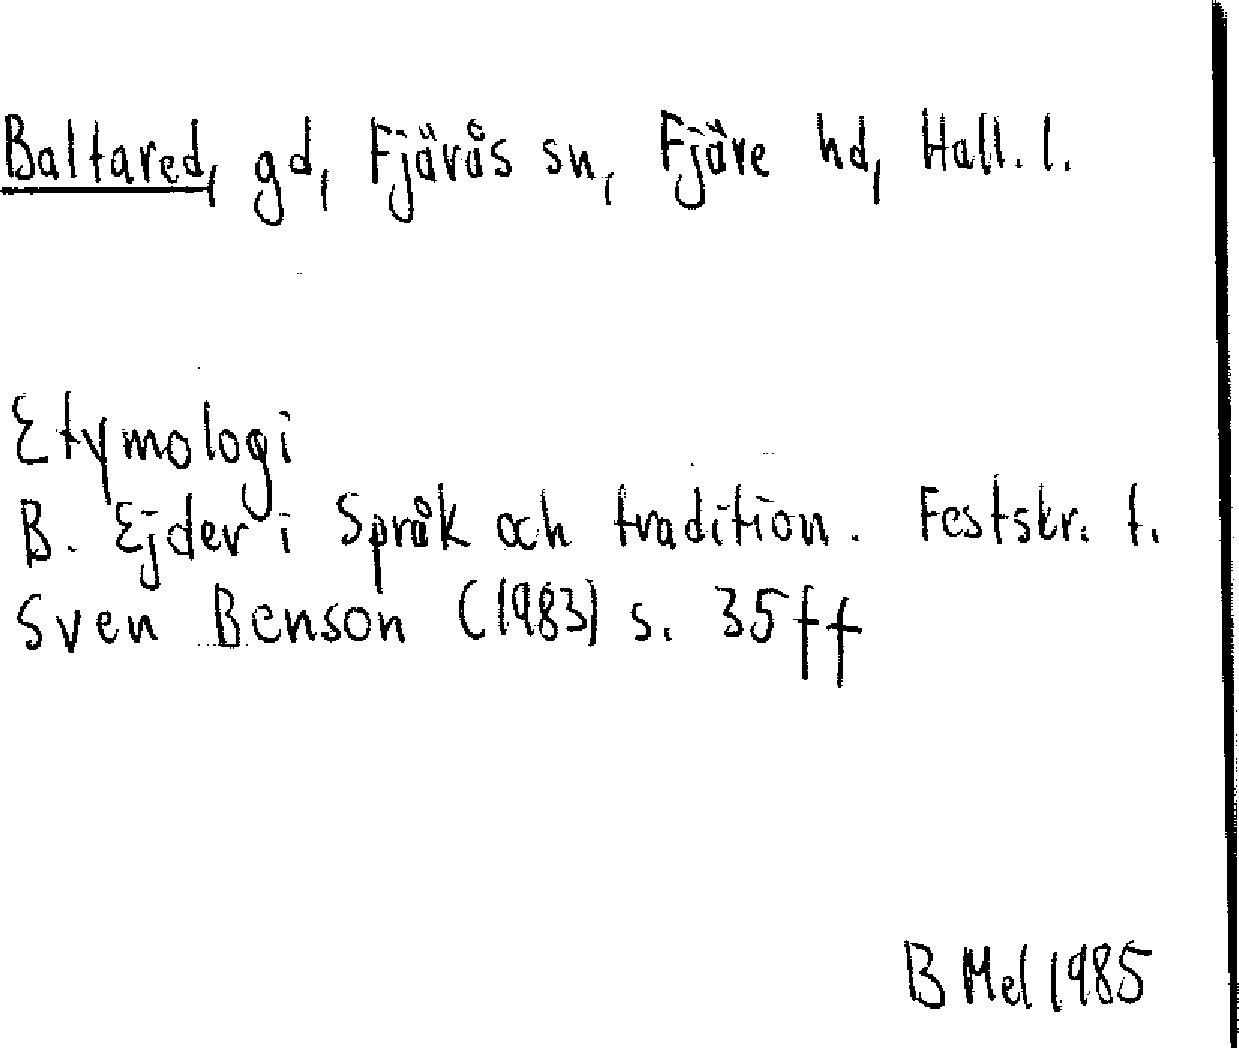 Baltared, gd, Fjärås sn, Fjäre hd, Hall. l.
Etymologi
B. Ejder i Språk och tradition. Festskr. t.
Sven Benson (1983) s. 35ff
B Mel 1985